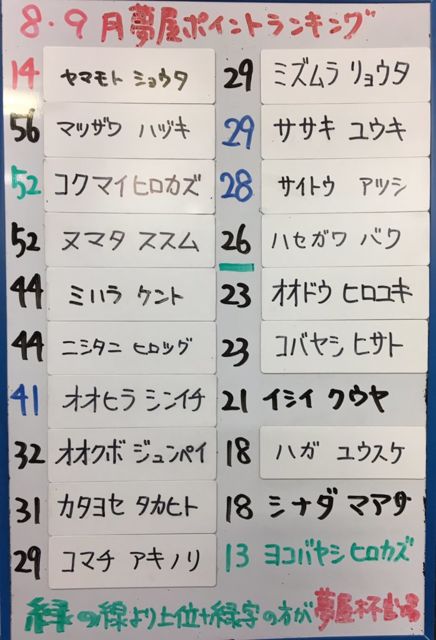 8.9月夢屋ポイントランキング
14 ヤマモト ショウタ
56 マツザワ ハヅキ
52 コクマイヒロカズ
52 ヌマタ ススム
44 ミハラ ケント
44 ニシタニ ヒロツグ
41 オオヒラ シンイチ
32 オオクボ ジュンペイ
31 カタヨセ タカヒト
29 コマチ アキノリ
29 ミズムラ リョウタ
29 ササキ ユウキ
28 サイトウ アツシ
26 ハセガワ バク
23 オオドウ ヒロユキ
23 コバヤシ ヒサト
21 イシイ クウヤ
18 ハガ ユウスケ
18 シナダ マアサ
13 ヨコバヤシヒロカズ
緑の線より上位+緑字の方が夢屋杯出場